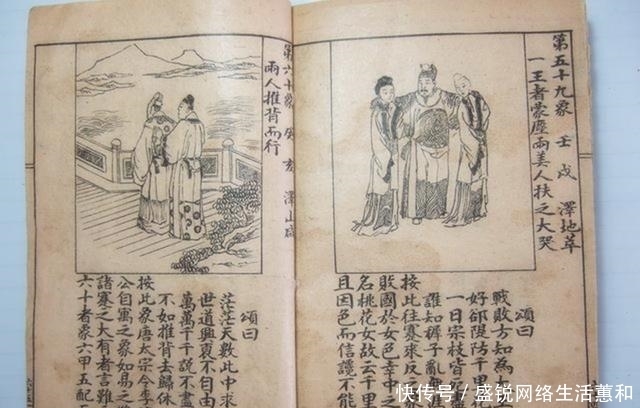 第五十九象 壬戌 澤地萃
一王者蒙塵兩美人扶之大哭
頌曰
戰敗方知為
好 隄防千里
一日宗枝皆
誰知褲子亂
按此往賽來反
敗國於女色幸中之
名桃花女故云千里
且因色而信讒不能
第六十象 癸亥 澤山咸
兩人推背而行
頌曰
茫茫天數此中求
世道興衰不自由
萬萬千千說不盡
不如推背去歸休
按此象唐太宗令李
公自寓之象如易之
諸蹇之大有者言
六十者象六甲五配
快传号/盛锐网络生活蕙和